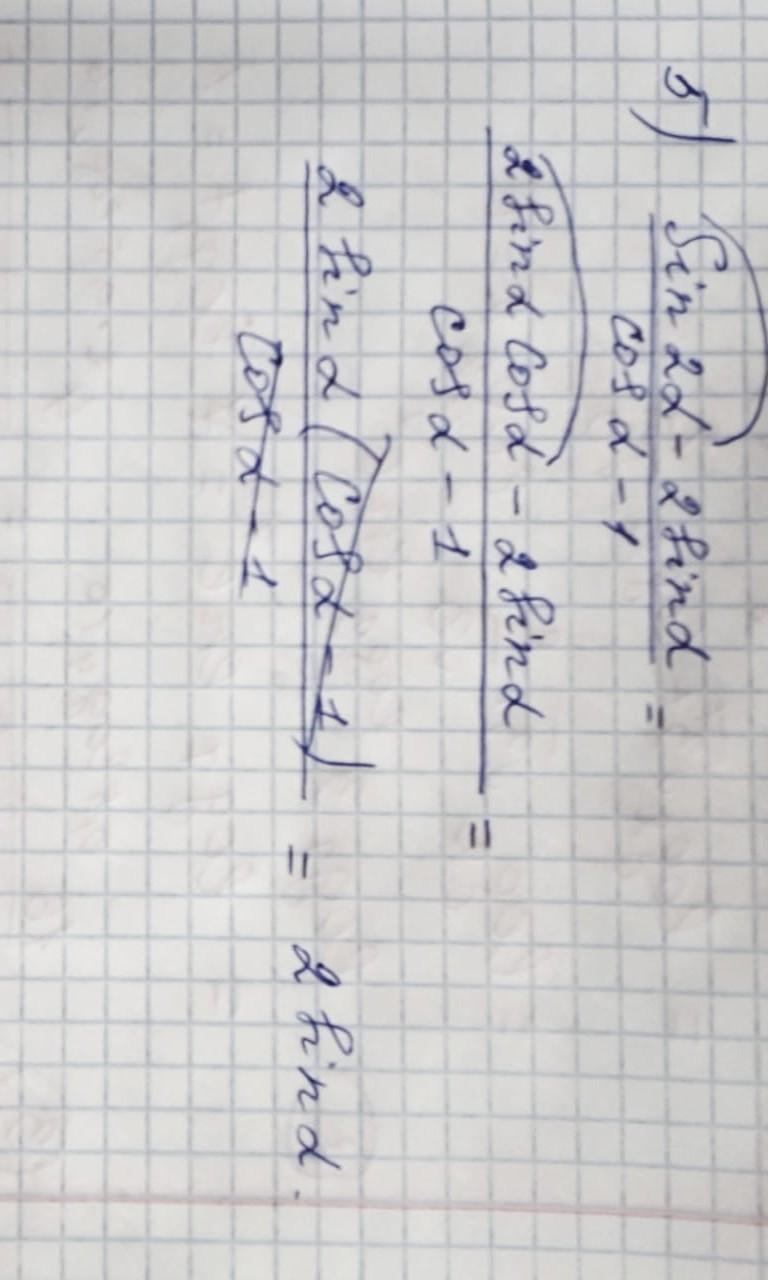 5) sin 2α - 2 sin α =
cos α - 1
2 sin α cos α - 2 sin α =
cos α - 1
2 sin α (cos α - 1) = 2 sin α.
cos α - 1